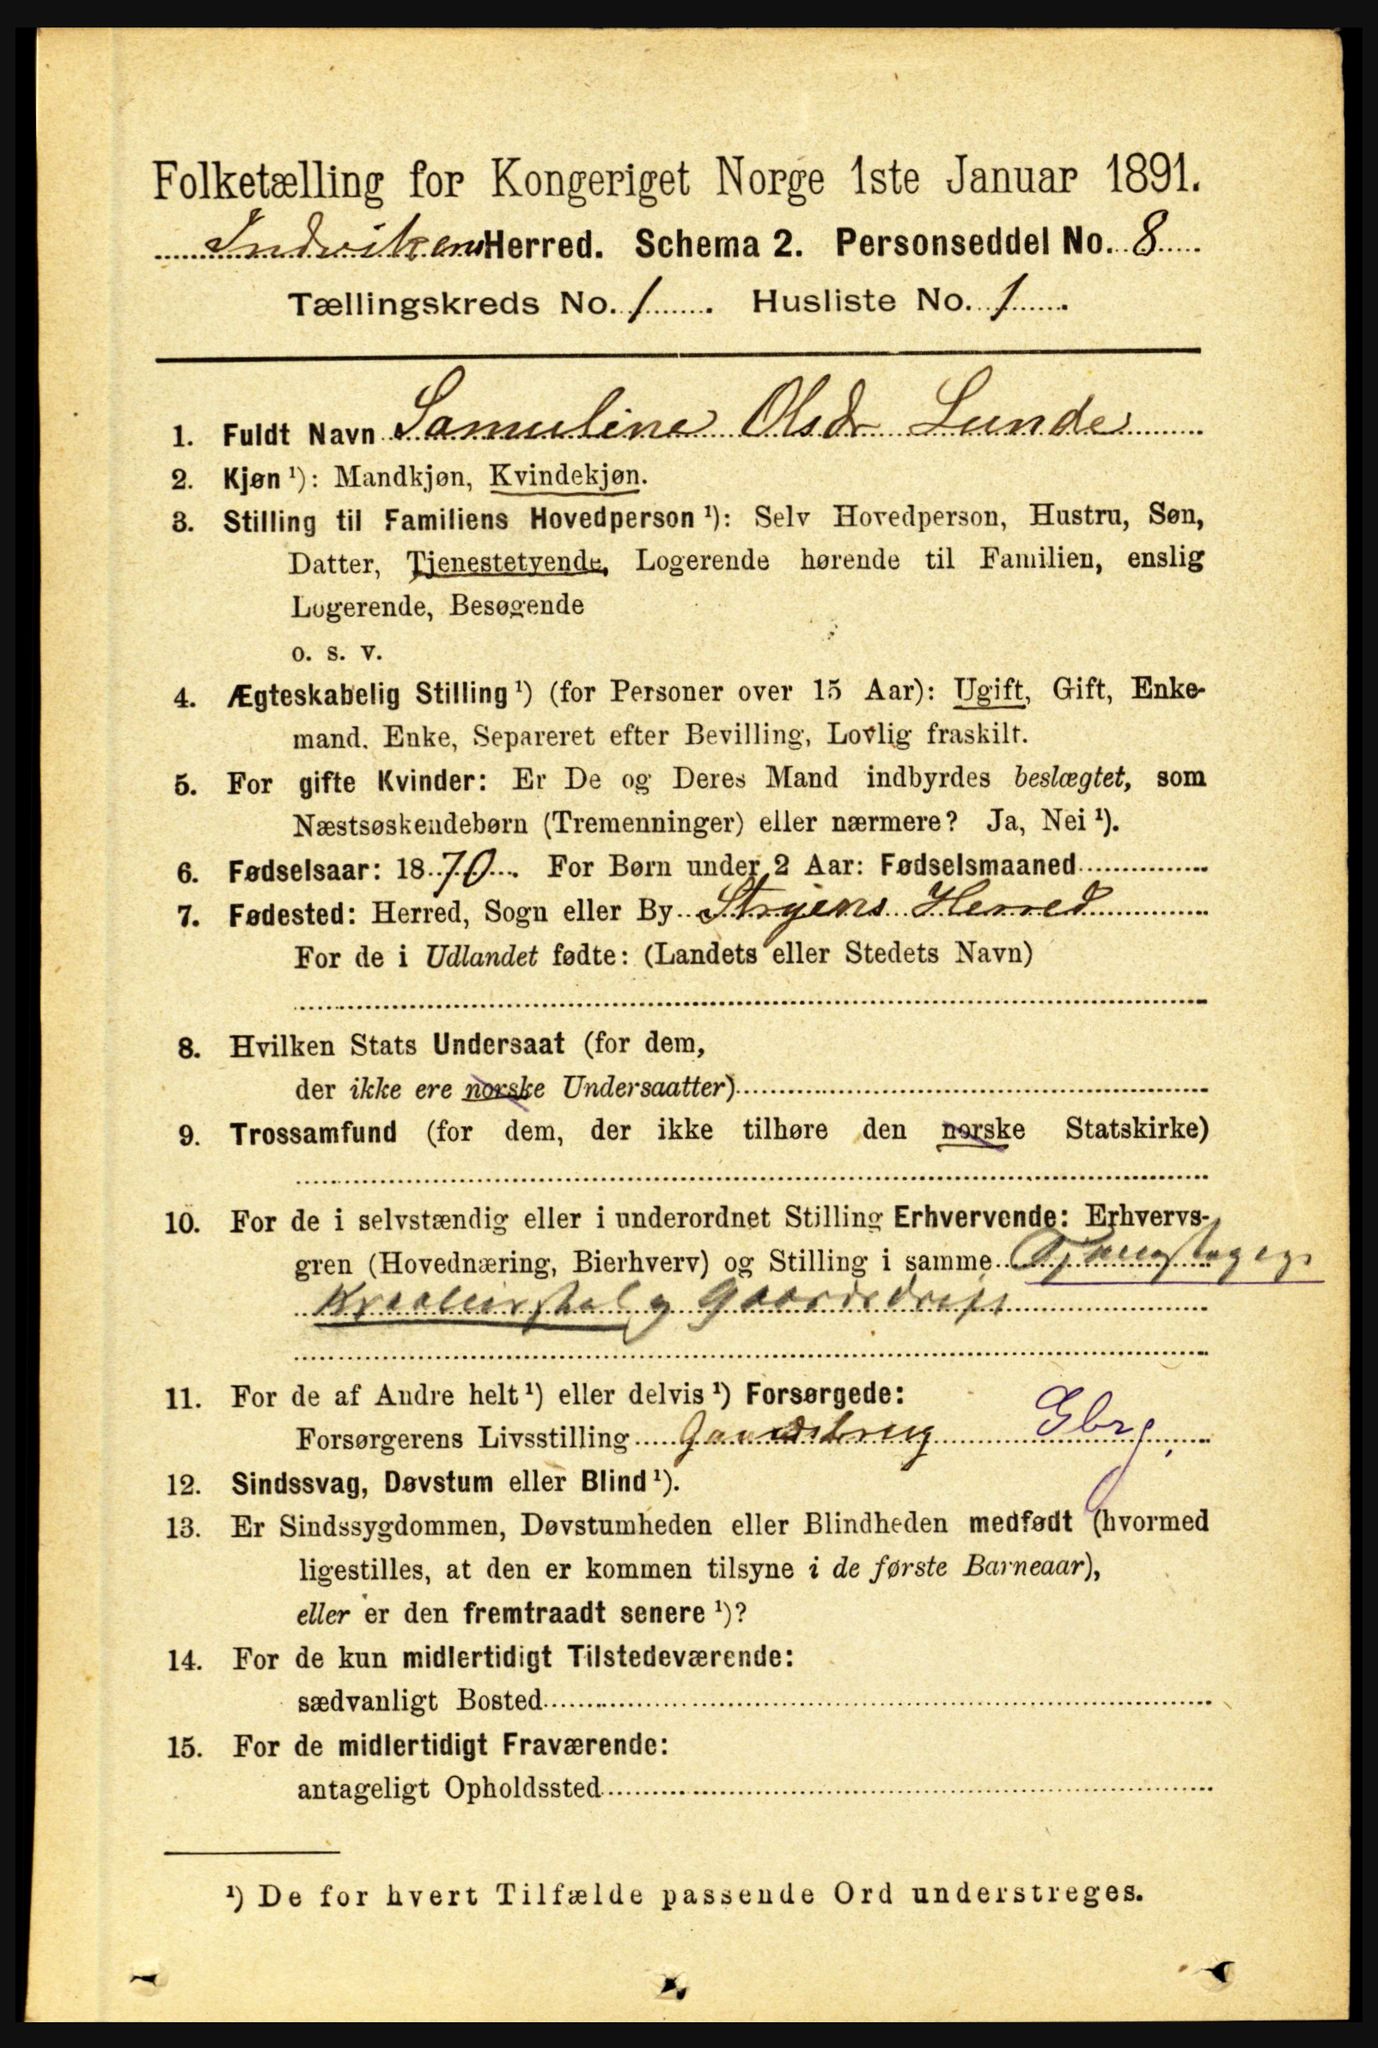 Folketælling for Kongeriget Norge 1ste Januar 1891.
Indvikens Herred. Schema 2. Personseddel No. 8
Tællingskreds No. 1. Husliste No. 1.
1. Fuldt Navn Samuline Olsdr Lunde
2. Kjøn ¹): Mandkjøn, Kvindekjøn.
3. Stilling til Familiens Hovedperson ¹): Selv Hovedperson, Hustru, Søn,
Datter, Tjenestetyende, Logerende hørende til Familien, enslig
Logerende, Besøgende
o. s. v.
4. Ægteskabelig Stilling ¹) (for Personer over 15 Aar): Ugift, Gift, Enke-
mand, Enke, Separeret efter Bevilling, Lovlig fraskilt.
5. For gifte Kvinder: Er De og Deres Mand indbyrdes beslægtet, som
Næstsøskendebørn (Tremenninger) eller nærmere? Ja, Nei ¹).
6. Fødselsaar: 1870. For Børn under 2 Aar: Fødselsmaaned
7. Fødested: Herred, Sogn eller By Stryens Herred
For de i Udlandet fødte: (Landets eller Stedets Navn)
8. Hvilken Stats Undersaat (for dem,
der ikke ere norske Undersaatter)
9. Trossamfund (for dem, der ikke tilhøre den norske Statskirke)
10. For de i selvstændig eller i underordnet Stilling Erhvervende: Erhvervs-
gren (Hovednæring, Bierhverv) og Stilling i samme
Kreaturstel og Gaardsdrift
11. For de af Andre helt ¹) eller delvis ¹) Forsørgede:
Forsørgerens Livsstilling Gaardbrug Gbr.
12. Sindssvag, Døvstum eller Blind ¹).
13. Er Sindssygdommen, Døvstumheden eller Blindheden medfødt (hvormed
ligestilles, at den er kommen tilsyne i de første Barneaar),
eller er den fremtraadt senere ¹)?
14. For de kun midlertidigt Tilstedeværende:
sædvanligt Bosted
15. For de midlertidigt Fraværende:
antageligt Opholdssted
¹) De for hvert Tilfælde passende Ord understreges.